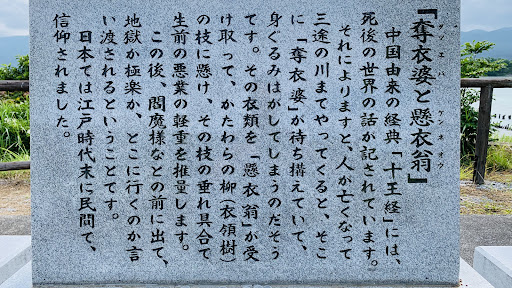 『奪衣婆と懸衣翁』
ダツエバ ケンエオウ
中国由来の経典「十王経」には、
死後の世界の話が記されています。
それによりますと、人が亡くなって
三途の川までやってくると、そこ
に「奪衣婆」が待ち構えていて、
身ぐるみはがしてしまうのだそう
です。その衣類を「懸衣翁」が受
け取って、かたわらの柳(衣領樹)
の枝に懸け、その枝の垂れ具合で
生前の悪業の軽重を推量します。
この後、閻魔様などの前に出て、
地獄か極楽か、どこに行くのか言
い渡されるということです。
日本では江戸時代末に民間で、
信仰されました。